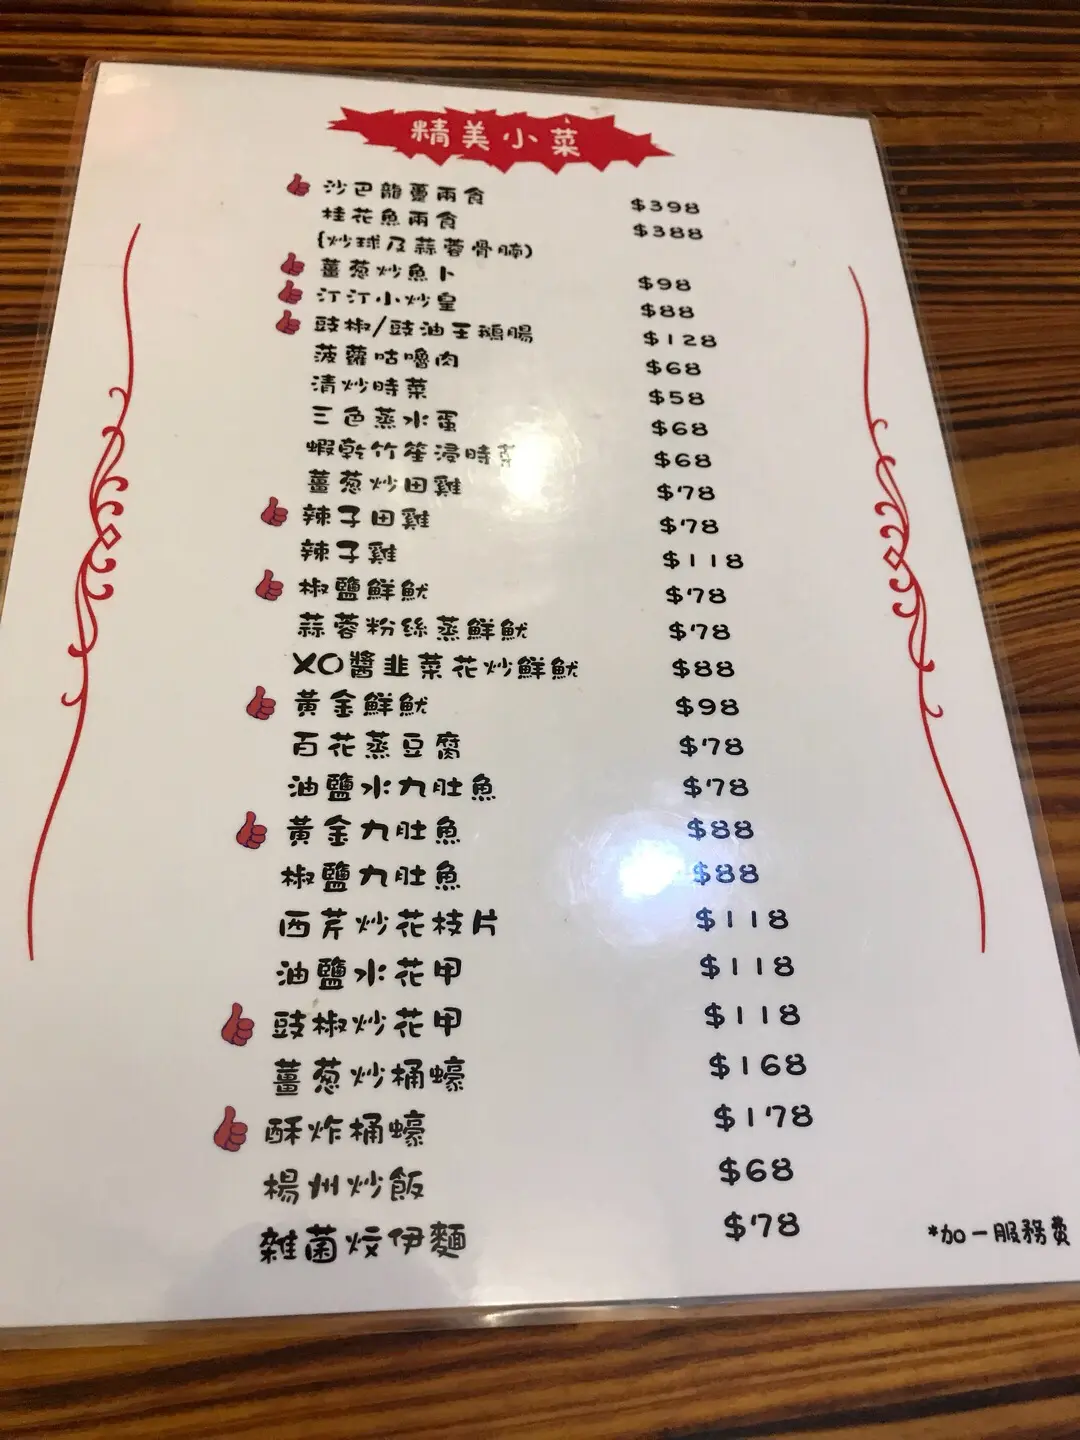 精美小菜
沙巴龍躉兩食 $398
桂花魚兩食 $388
(炒球及蒜蓉骨腩)
薑葱炒魚卜 $98
汀汀小炒皇 $88
豉椒/豉油王鵝腸 $128
菠蘿咕嚕肉 $68
清炒時菜 $58
三色蒸水蛋 $68
蝦乾竹笙浸時菜 $68
薑葱炒田雞 $78
辣子田雞 $78
辣子雞 $118
椒鹽鮮魷 $78
蒜蓉粉絲蒸鮮魷 $78
XO醬韭菜花炒鮮魷 $88
黃金鮮魷 $98
百花蒸豆腐 $78
油鹽水九肚魚 $78
黃金九肚魚 $88
椒鹽九肚魚 $88
西芹炒花枝片 $118
油鹽水花甲 $118
豉椒炒花甲 $118
薑葱炒桶蠔 $168
酥炸桶蠔 $178
楊州炒飯 $68
雜菌炆伊麵 $78
*加一服務費